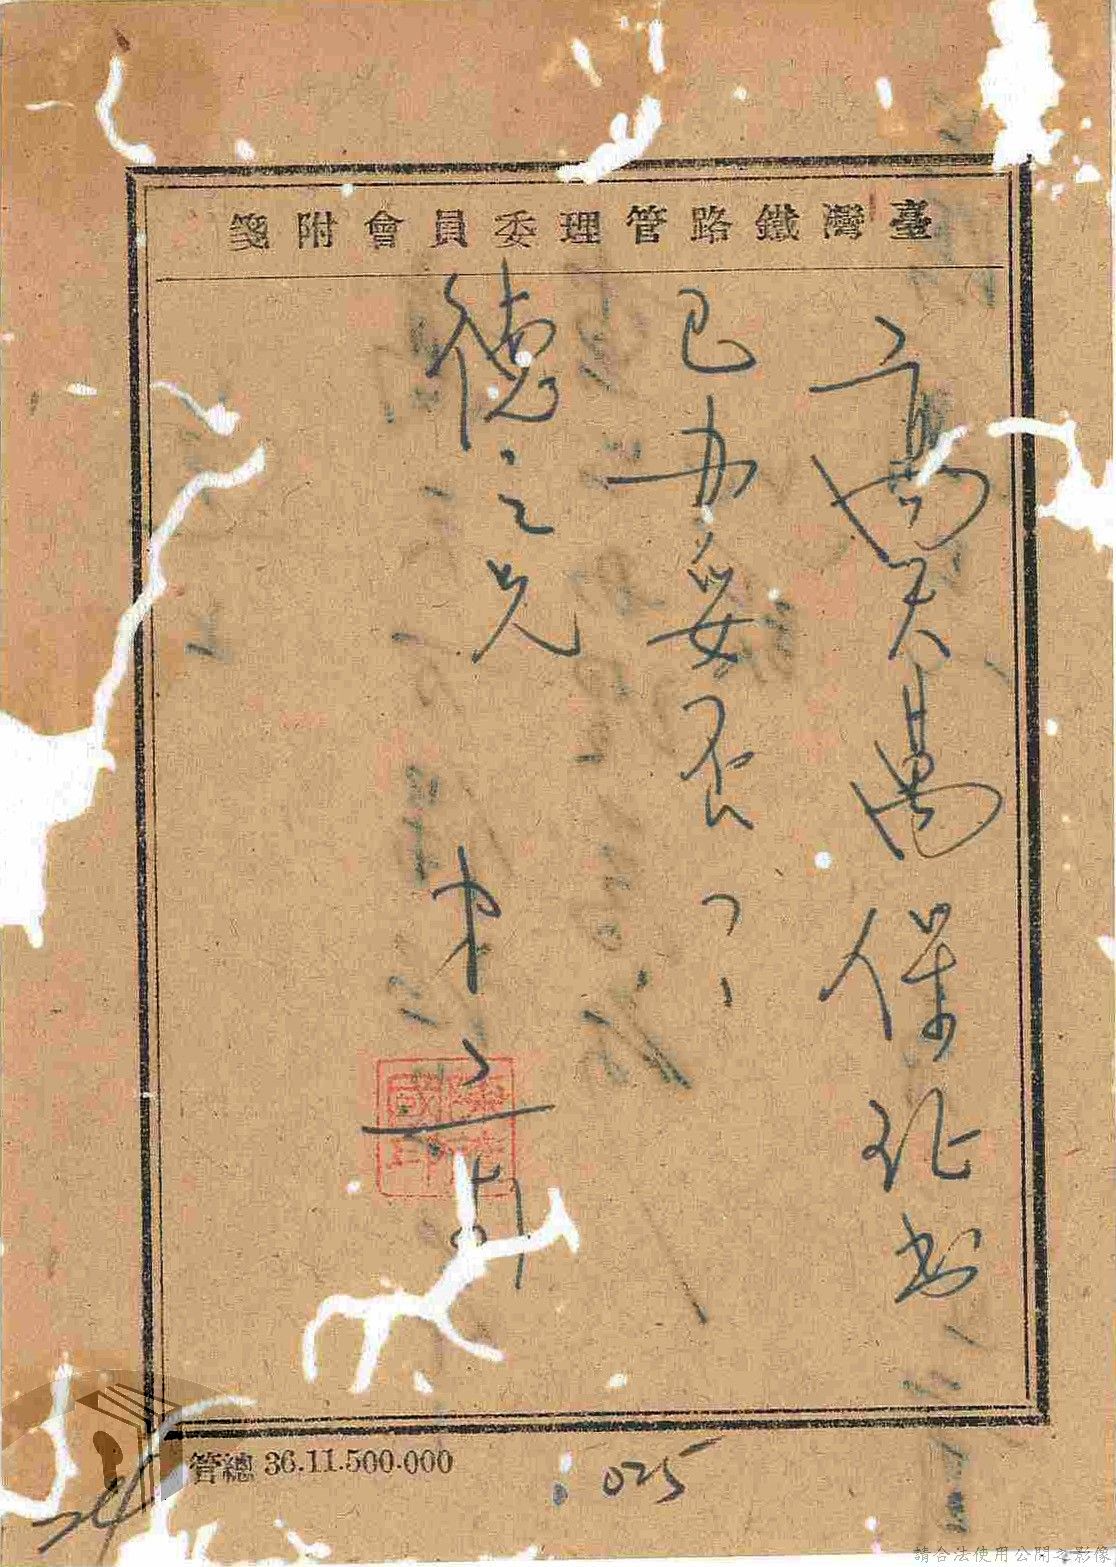 臺灣鐵路管理委員會附箋
高天萬保證書
已辦妥否？
德之兄
弟
國
印
管總 36.11.500.000
025
24
請合法使用公開之影像